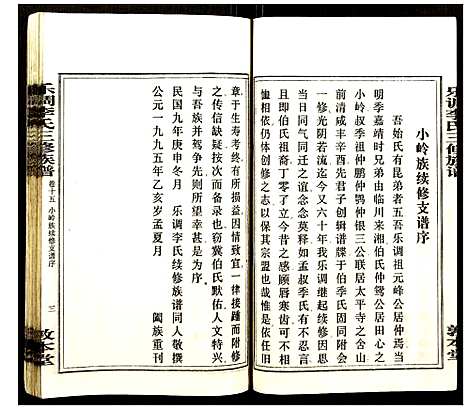 乐调李氏三修族谱
小岭族续修支谱序
吾始氏有昆弟者五吾乐调祖元峰公居仲焉当
明季嘉靖时兄弟由临川来湘伯氏仲鸳公居田心之
小岭叔季祖仲鹏仲鹗仲衔三公联居太平寺之含山
前清咸丰辛酉先君子创辑谱牒于伯季氏固同附会
一修光阴若流迄今又六十年我乐调继起续修同人
当日同气同迁之情因思前后感触之忱不忍相背
且即伯氏祖裔切了立今昔之感顾唇寒齿有可相
恤相依仍古体创修之志以其保宗盟也哉有依任旧
章于生寿考终有所损益因情有宜一律接踵而附修
之传信缺疑按次而备录也窃冀伯氏默佑人文特兴
与吾族并驾争先则所望幸甚是为序
民国九年庚申冬月 乐调李氏续修族谱同人敬撰
公元一九九五年乙亥岁孟夏月 阖族重刊
乐调李氏三修族谱
卷十五 小岭族续修支谱序
三
敦本堂
敦本堂